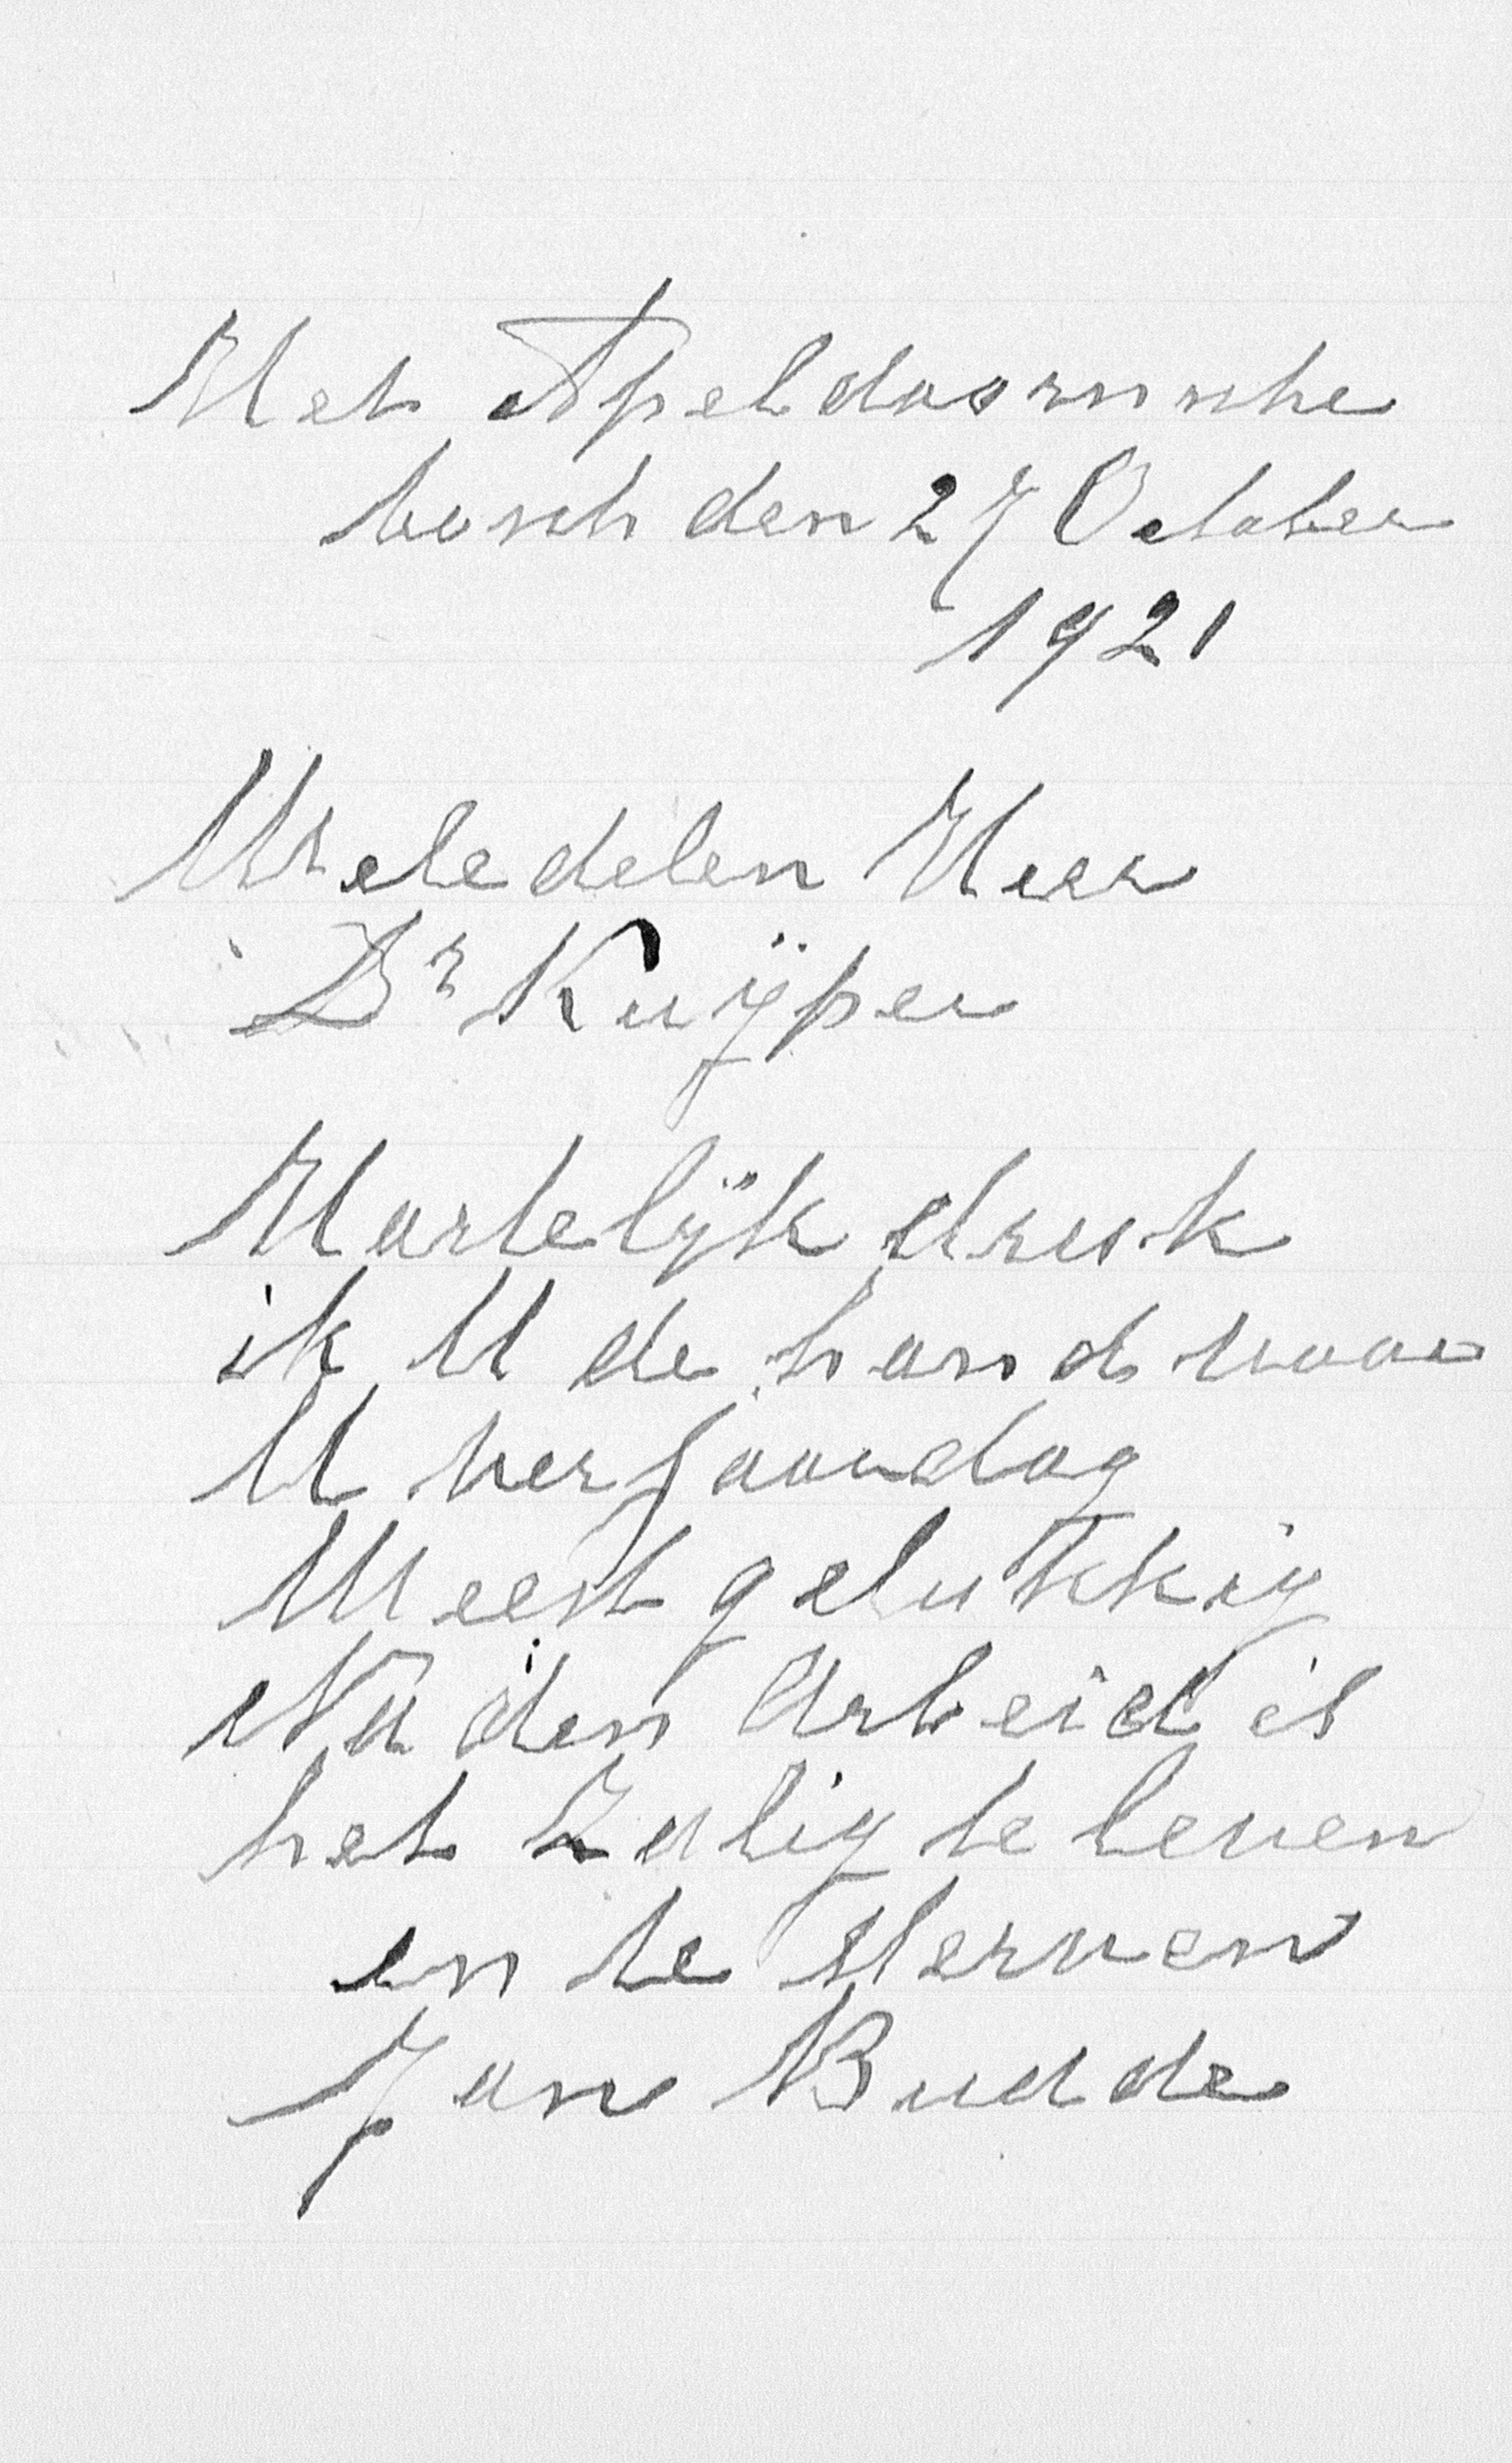 Het Apeldoornsche
bosch den 27 October
1921
Weledelen Heer
Dr Kuÿper
Hartelÿk druk
ik U de hand voor
U verjaardag
Weest gelukkig
Na den Arbeid is
het Zalig te leven
en te sterven
Jan Budde